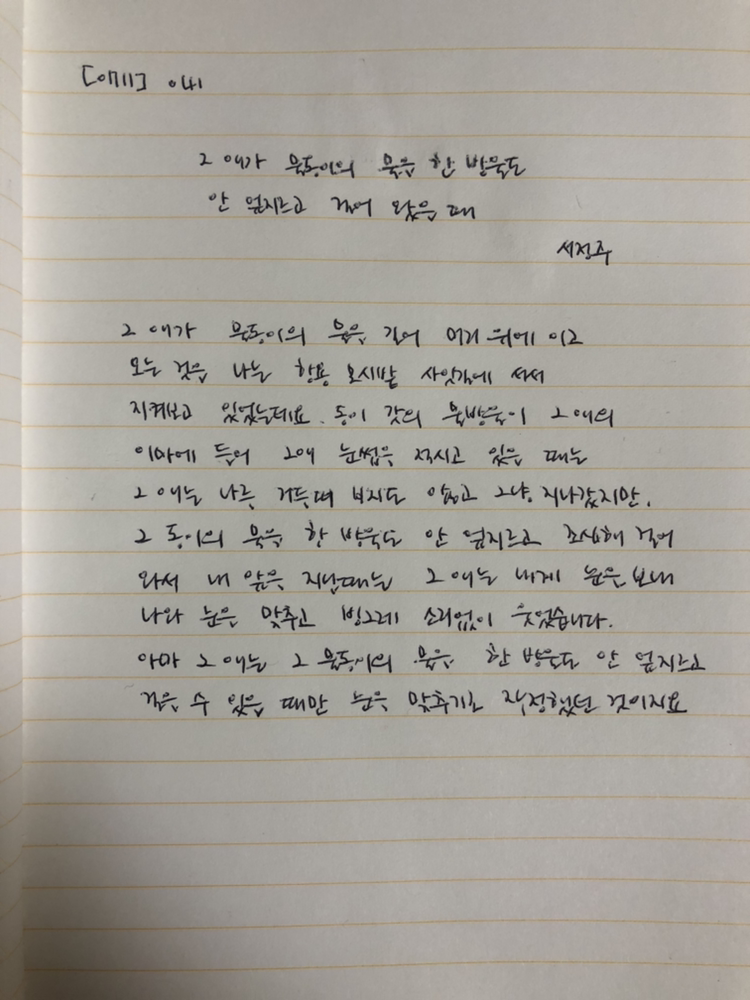 [0711] 041
그 애가 물동이의 물을 한 방울도
안 엎지르고 걸어 왔을 때
서정주
그 애가 물동이의 물을 길어 머리 위에 이고
오는 것을 나는 항용 모시밭 사잇길에 서서
지켜보고 있었는데요. 동이 갓의 물방울이 그 애의
이마에 들어 그애 눈썹을 적시고 있을 때는
그 애는 나를 거들떠 보지도 않고 그냥 지나갔지만,
그 동이의 물을 한 방울도 안 엎지르고 조심해 걸어
와서 내 앞을 지날때는 그 애는 내게 눈을 보내
나와 눈을 맞추고 빙그레 소리없이 웃었습니다.
아마 그 애는 그 물동이의 물을 한 방울도 안 엎지르고
걸을 수 있을 때만 눈을 맞추기로 작정했던 것이지요